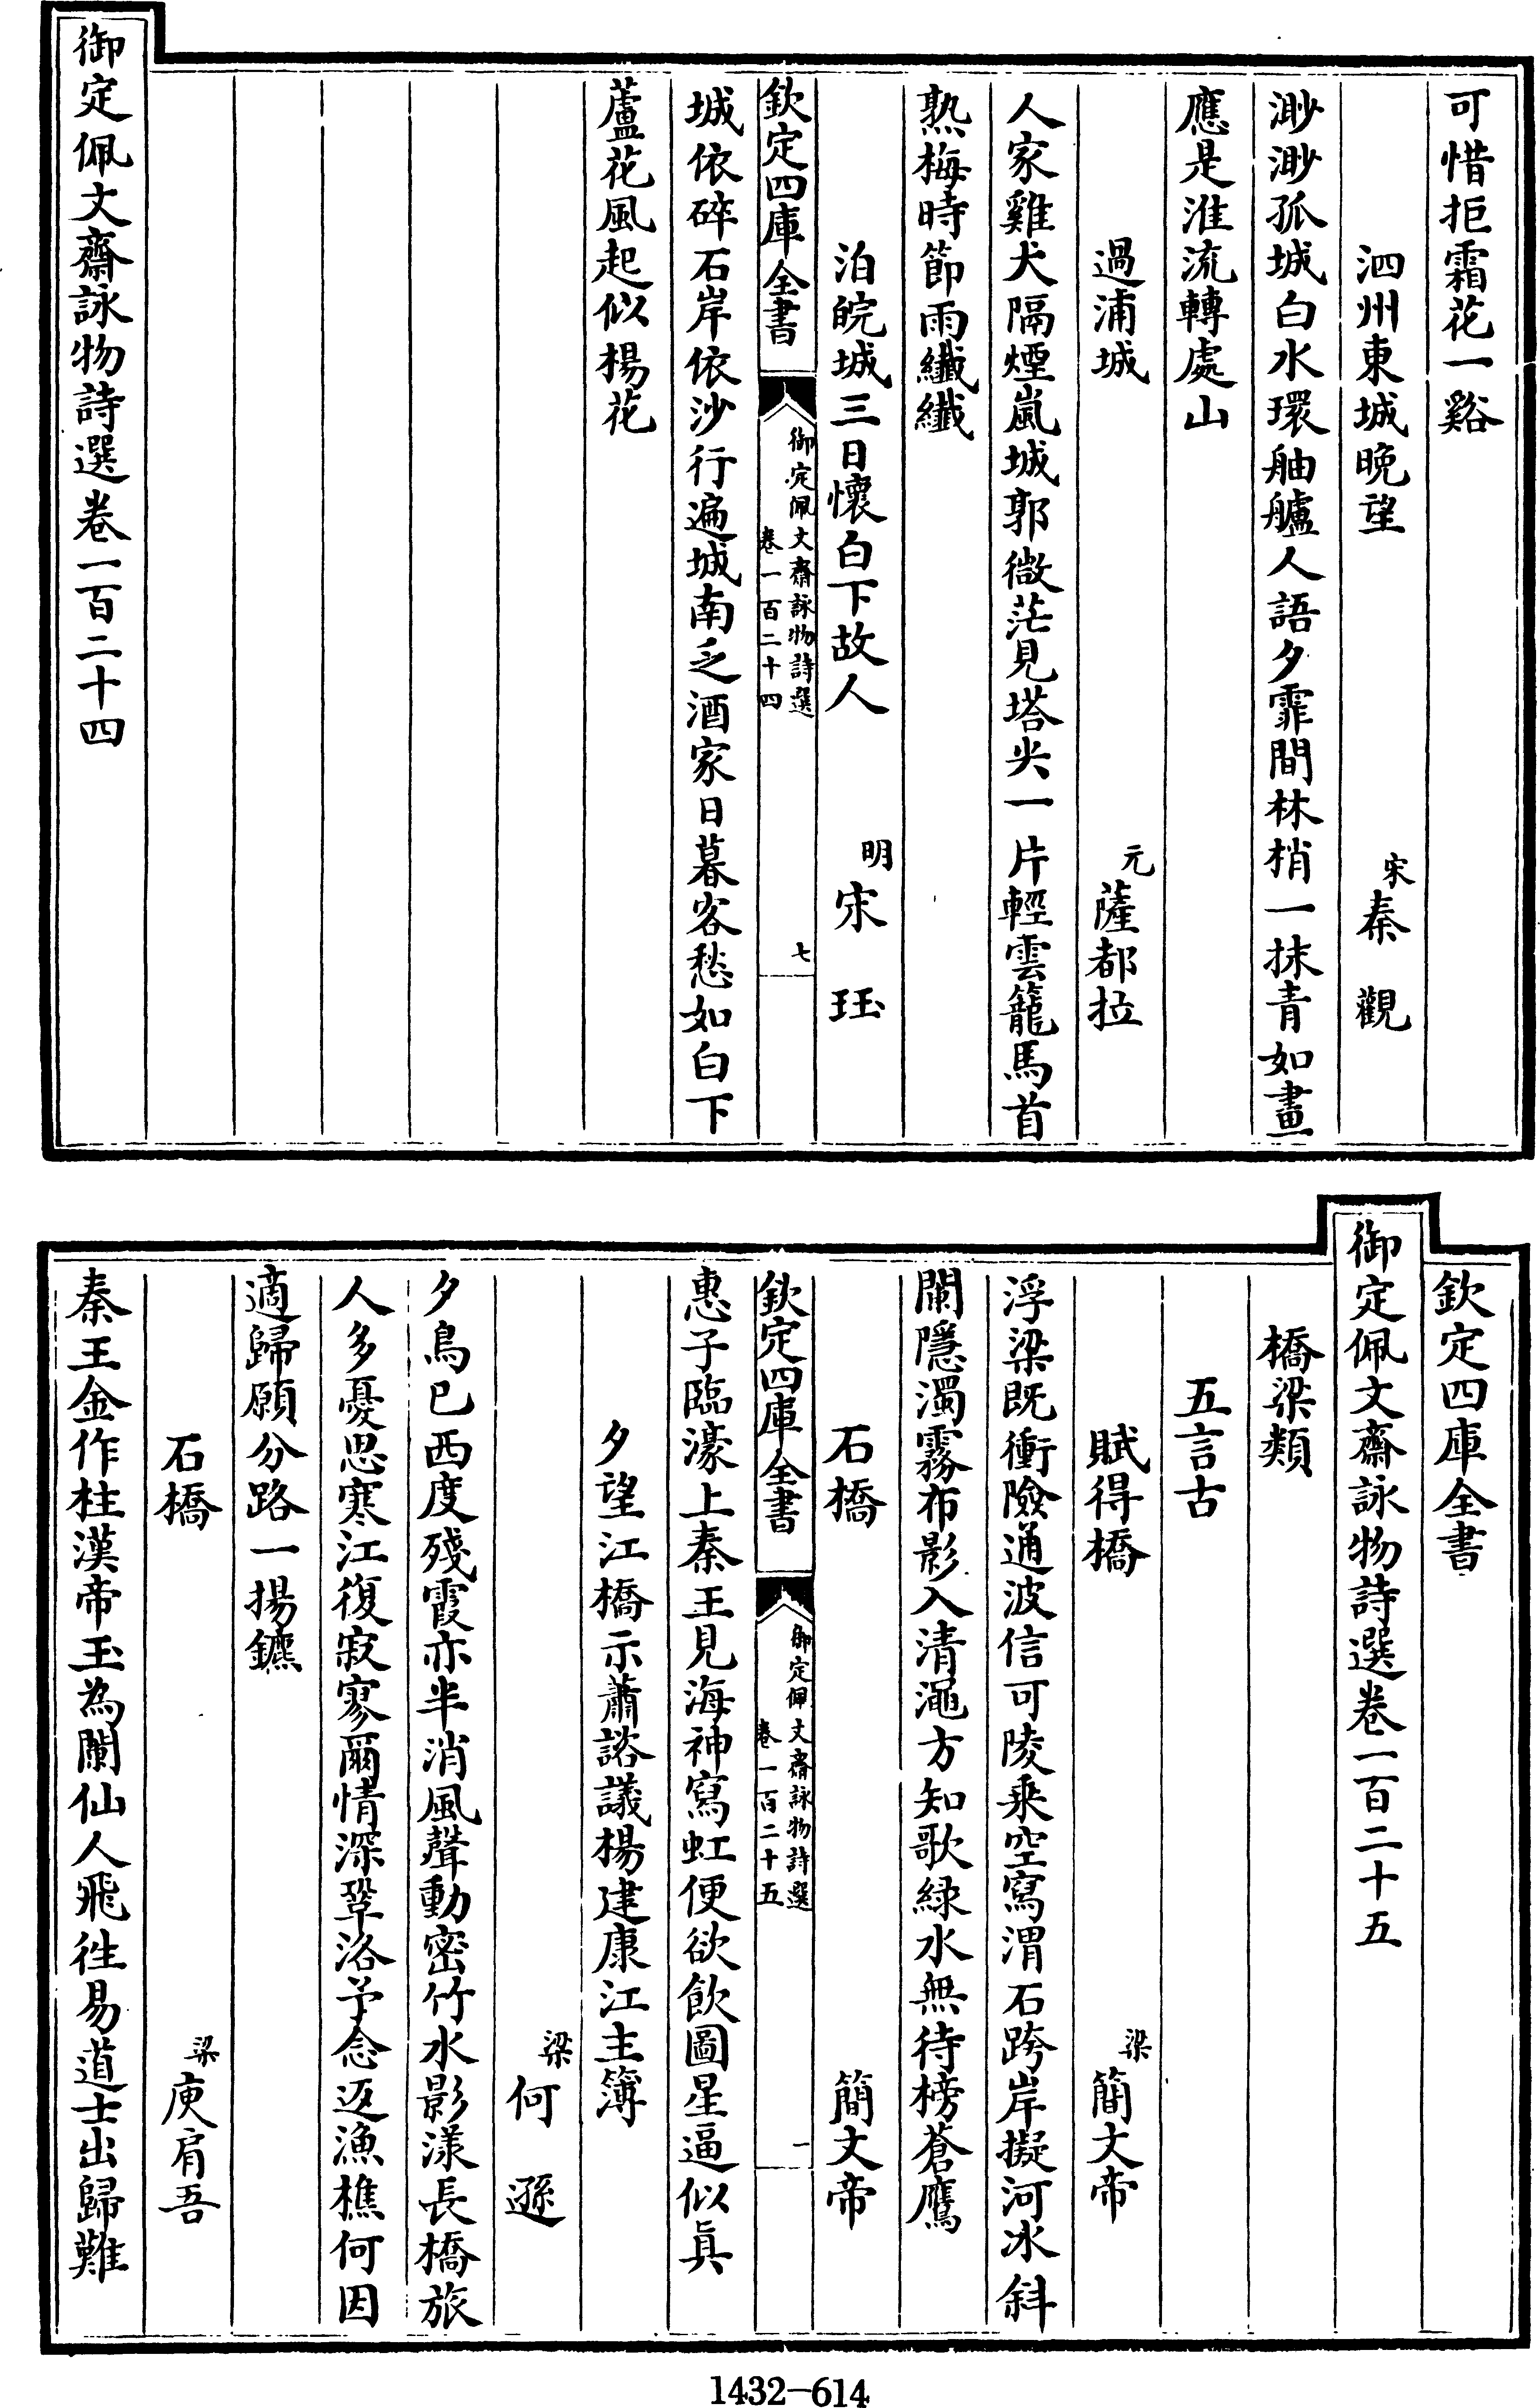 可惜拒霜花一谿
泗州東城晚望 宋 秦觀
渺渺孤城白水環舳艫人語夕霏間林梢一抹青如畫
應是淮流轉處山
過浦城 元 薩都拉
人家雞犬隔煙嵐城郭微茫見塔尖一片輕雲籠馬首
熟梅時節雨纖纖
泊皖城三日懷白下故人 明 宋珏
欽定四庫全書 御定佩文齋詠物詩選 卷一百二十四 七
城依碎石岸依沙行遍城南乏酒家日暮客愁如白下
蘆花風起似楊花
御定佩文齋詠物詩選卷一百二十四
欽定四庫全書
御定佩文齋詠物詩選卷一百二十五
橋梁類
五言古
賦得橋 梁 簡文帝
浮梁既衝險通波信可陵乗空寫渭石跨岸擬河冰斜
闌隱濁霧布影入清澠方知歌緑水無待榜蒼鷹
石橋 簡文帝
欽定四庫全書 御定佩文齋詠物詩選 卷一百二十五 一
惠子臨濠上秦王見海神寫虹便欲飲圖星逼似真
夕望江橋示蕭諮議楊建康江主簿
梁 何遜
夕鳥已西度殘霞亦半消風聲動密竹水影漾長橋旅
人多憂思寒江復寂寥爾情深鞏洛予念返漁樵何因
適歸願分路一揚鑣
石橋 梁 庾肩吾
秦王金作柱漢帝玉為闌仙人飛徃易道士出歸難
1432-614